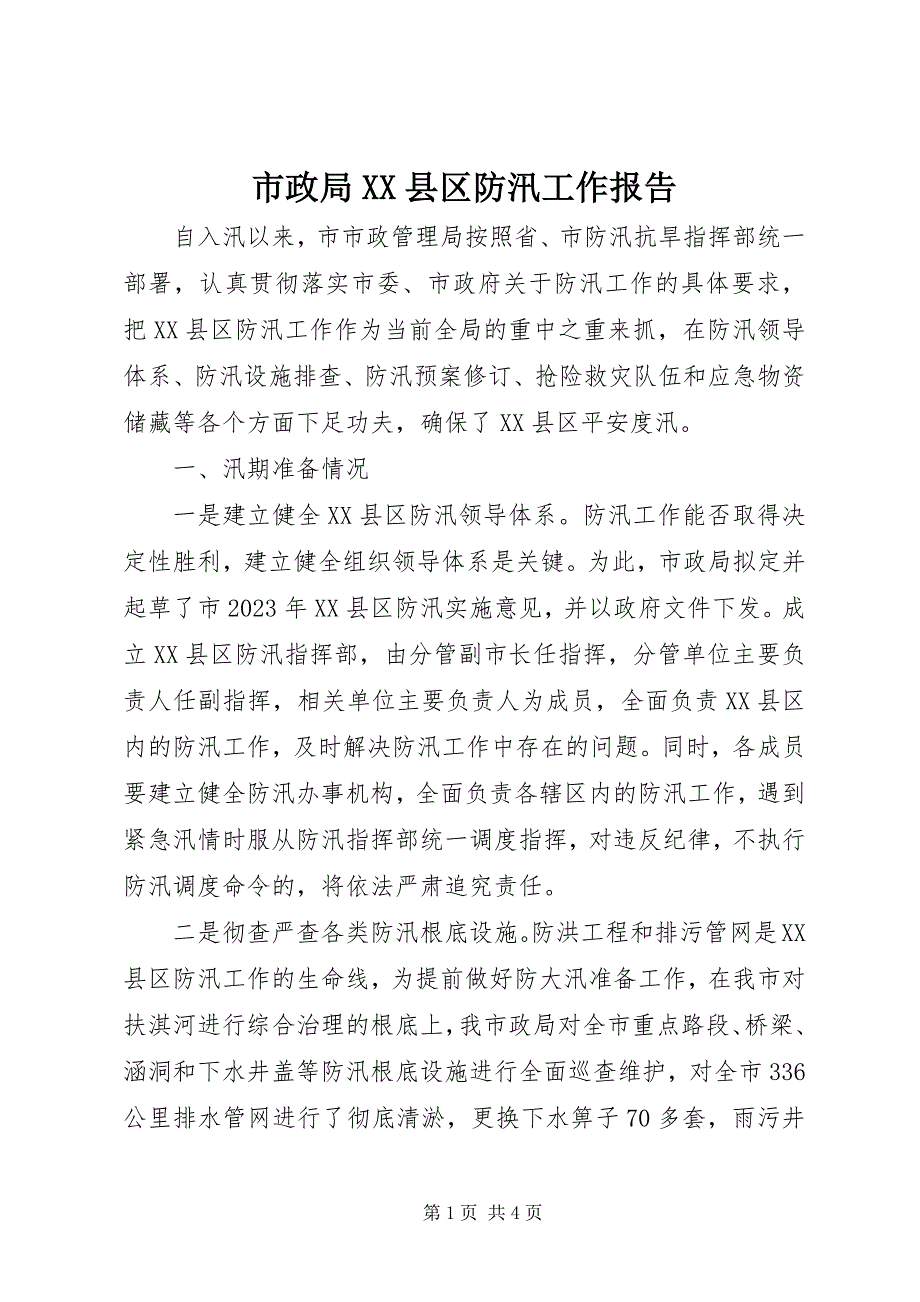 市政局 XX 县区防汛工作报告
自入汛以来，市市政管理局按照省、市防汛抗旱指挥部统一
部署，认真贯彻落实市委、市政府关于防汛工作的具体要求，
把 XX 县区防汛工作作为当前全局的重中之重来抓，在防汛领导
体系、防汛设施排查、防汛预案修订、抢险救灾队伍和应急物资
储藏等各个方面下足功夫，确保了 XX 县区平安度汛。
一、汛期准备情况
一是建立健全 XX 县区防汛领导体系。防汛工作能否取得决
定性胜利，建立健全组织领导体系是关键。为此，市政局拟定并
起草了市 2023 年 XX 县区防汛实施意见，并以政府文件下发。成
立 XX 县区防汛指挥部，由分管副市长任指挥，分管单位主要负
责人任副指挥，相关单位主要负责人为成员，全面负责 XX 县区
内的防汛工作，及时解决防汛工作中存在的问题。同时，各成员
要建立健全防汛办事机构，全面负责各辖区内的防汛工作，遇到
紧急汛情时服从防汛指挥部统一调度指挥，对违反纪律，不执行
防汛调度命令的，将依法严肃追究责任。
二是彻查严查各类防汛根底设施。防洪工程和排污管网是 XX
县区防汛工作的生命线，为提前做好防大汛准备工作，在我市对
扶淇河进行综合治理的根底上，我市政局对全市重点路段、桥梁、
涵洞和下水井盖等防汛根底设施进行全面巡查维护，对全市 336
公里排水管网进行了彻底清淤，更换下水箅子 70 多套，雨污井
第 1 页 共 4 页